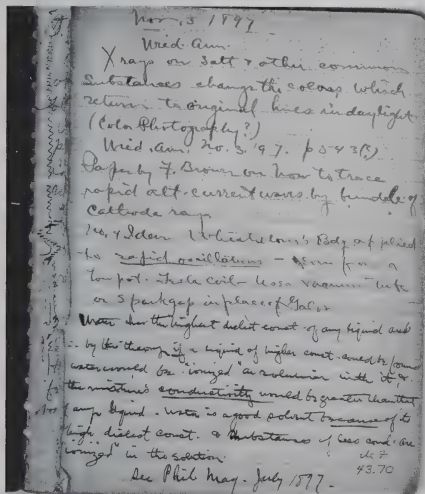 Nov, 3 1897
Wied. Ann.
X rays on Salt & other common
Substances change the colors which
return to original hues in daylight.
(Color Photography?)
Wied. Ann. No. 3. '97. p 543(?)
Paper by F. Braun on How to trace
rapid alt. current waves by bundle of
Cathode rays
No. 4 Idem Wheatstone's Bdg applied
to rapid oscillations - from a
low pot. Tesla Coil - Uses vacuum tube
or Spark gap in place of Galv
Water has the highest dielect const. of any liquid and
∴ by the theory if a liquid of higher const. could be found
water would be "ionized" as solution in it &
the mixture's conductivity would be greater than that
of any liquid. Water is a good solvent because of its
high dielect const. & substances of less cond. are
"ionized" in the solution
See Phil Mag. July 1897.
43.70